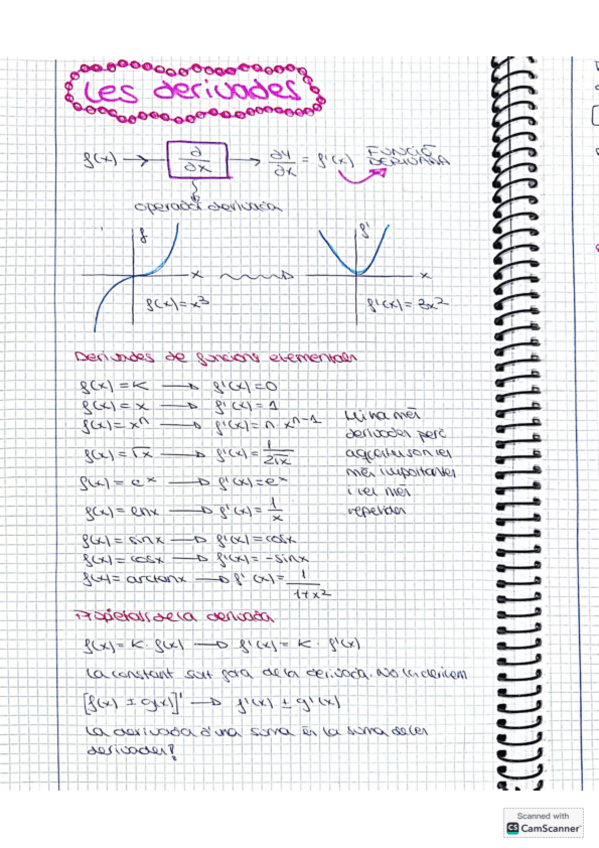 Les derivades
f(x) → ∂/∂x → ∂y/∂x = f'(x) FUNCIÓ DERIVADA
operador derivada
f f'
x x
f(x)=x³ f'(x)=3x²
Derivades de funcions elementals
f(x)=K → f'(x)=0
f(x)=x → f'(x)=1
f(x)=xⁿ → f'(x)=n·xⁿ⁻¹
f(x)=√x → f'(x)=1/2√x
f(x)=eˣ → f'(x)=eˣ
f(x)=lnx → f'(x)=1/x
f(x)=sinx → f'(x)=cosx
f(x)=cosx → f'(x)=-sinx
f(x)=arctanx → f'(x)=1/1+x²
Hi ha més
derivades però
aquestes son les
més importants
i les més
repetides
Propietats de la derivada
f(x)=K·f(x) → f'(x)=K·f'(x)
La constant surt fora de la derivada. No la derivem
[f(x) ± g(x)]' → f'(x) ± g'(x)
La derivada d'una suma és la suma de les
derivades!
Scanned with
CS CamScanner